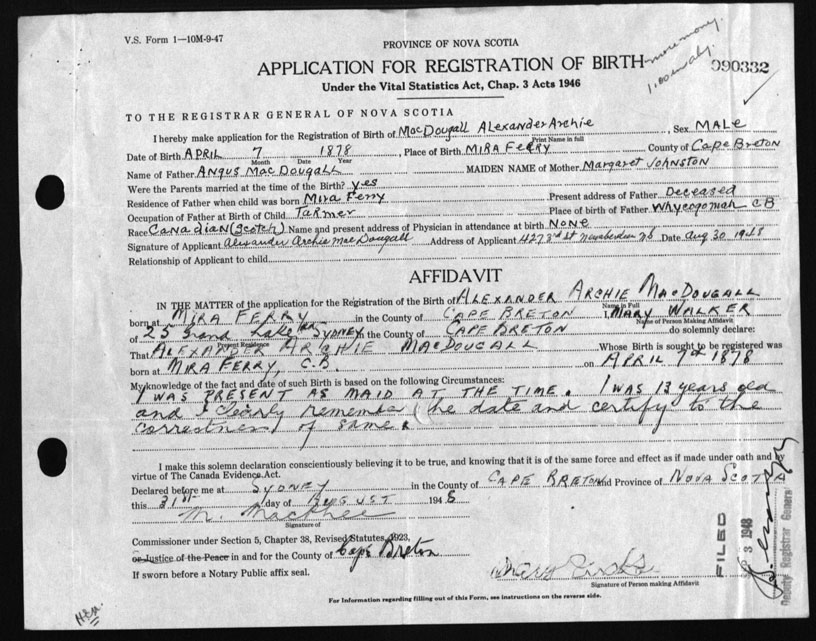 V.S. Form 1—10M-9-47
PROVINCE OF NOVA SCOTIA
APPLICATION FOR REGISTRATION OF BIRTH
more money
090332
Under the Vital Statistics Act, Chap. 3 Acts 1946
TO THE REGISTRAR GENERAL OF NOVA SCOTIA
I hereby make application for the Registration of Birth of MacDougall Alexander Archie, Sex MALE
Print Name in full
Date of Birth APRIL 7 1878, Place of Birth MIRA FERRY County of Cape Breton
Month Date Year
Name of Father Angus MacDougall MAIDEN NAME of Mother Margaret Johnston
Were the Parents married at the time of the Birth? yes
Residence of Father when child was born Mira Ferry Present address of Father Deceased
Occupation of Father at Birth of Child Farmer Place of birth of Father Whycogomah CB
Race Canadian (Scotch) Name and present address of Physician in attendance at birth NONE
Signature of Applicant Alexander Archie MacDougall Address of Applicant 427 3rd St Date Aug 30 1948
Relationship of Applicant to child
AFFIDAVIT
IN THE MATTER of the application for the Registration of the Birth of ALEXANDER ARCHIE MACDOUGALL
Name in Full
born at MIRA FERRY in the County of CAPE BRETON I, MARY WALKER
Name of Person Making Affidavit
of 25 Grand Lake Rd SYDNEY in the County of CAPE BRETON do solemnly declare:
Present Residence
That ALEXANDER ARCHIE MACDOUGALL Whose Birth is sought to be registered was
born at MIRA FERRY, C.B. on APRIL 7th 1878
My knowledge of the fact and date of such Birth is based on the following Circumstances:
I WAS PRESENT AS MAID AT THE TIME. I WAS 13 years old
and I clearly remember the date and certify to the
correctness of same.
I make this solemn declaration conscientiously believing it to be true, and knowing that it is of the same force and effect as if made under oath and by
virtue of The Canada Evidence Act.
Declared before me at SYDNEY in the County of CAPE BRETON and Province of NOVA SCOTIA
this 31st day of AUGUST 1948
Signature of
Commissioner under Section 5, Chapter 38, Revised Statutes, 1923,
or Justice of the Peace in and for the County of Cape Breton
If sworn before a Notary Public affix seal.
Signature of Person making Affidavit
FILED
3 1948
Deputy Registrar General
For Information regarding filling out of this Form, see instructions on the reverse side.